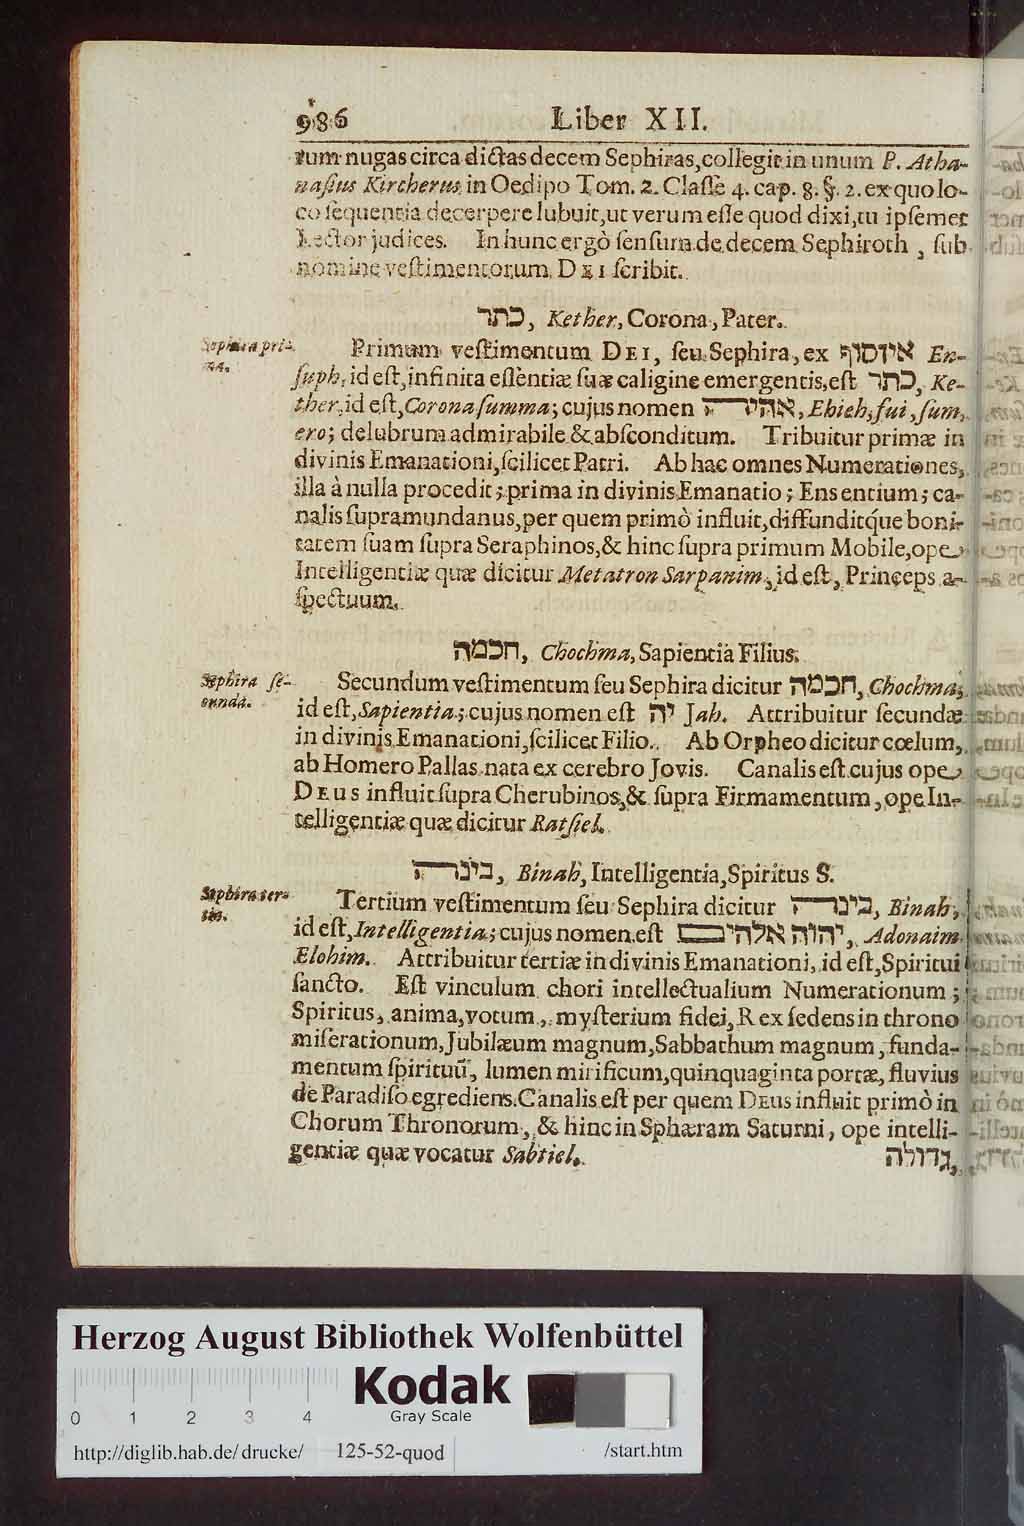 986 Liber XII.
rum nugas circa dictas decem Sephiras, collegit in unum P. Atha-
nasius Kircherus in Oedipo Tom. 2. Classe 4. cap. 8. §. 2. ex quo lo-
co sequentia decerpere lubuit, ut verum esse quod dixi, tu ipsemet
Lector judices. In hunc ergò sensum de decem Sephiroth, sub
nomine vestimentorum DEI scribit.
כתר, Kether, Corona, Pater.
Sephira pri-
ma.
Primum vestimentum DEI, seu Sephira, ex אינסוף En-
suph, id est, infinita essentiæ suæ caligine emergentis, est כתר, Ke-
ther, id est, Corona summa; cujus nomen אהיה, Ehieh, fui, sum,
ero; delubrum admirabile & absconditum. Tribuitur primæ in
divinis Emanationi, scilicet Patri. Ab hac omnes Numerationes,
illa à nulla procedit; prima in divinis Emanatio; Ens entium; ca-
nalis supramundanus, per quem primò influit, diffunditq́ue boni-
tatem suam supra Seraphinos, & hinc supra primum Mobile, ope
Intelligentiæ quæ dicitur Metatron Sarpanim, id est, Princeps a-
spectuum.
חכמה, Chochma, Sapientia Filius.
Sephira se-
cunda.
Secundum vestimentum seu Sephira dicitur חכמה, Chochma,
id est, Sapientia; cujus nomen est יה Jah. Attribuitur secundæ
in divinis Emanationi, scilicet Filio. Ab Orpheo dicitur cœlum,
ab Homero Pallas nata ex cerebro Jovis. Canalis est cujus ope
DEus influit supra Cherubinos, & supra Firmamentum, ope In-
telligentiæ quæ dicitur Ratsiel.
בינה, Binah, Intelligentia, Spiritus S.
Sephira ter-
tia.
Tertium vestimentum seu Sephira dicitur בינה, Binah,
id est, Intelligentia; cujus nomen est יהוה אלהים, Adonaim
Elohim. Attribuitur tertiæ in divinis Emanationi, id est, Spiritui
sancto. Est vinculum chori intellectualium Numerationum;
Spiritus, anima, votum, mysterium fidei, Rex sedens in throno
miserationum, Jubilæum magnum, Sabbathum magnum, funda-
mentum spirituū, lumen mirificum, quinquaginta portæ, fluvius
de Paradiso egrediens. Canalis est per quem DEus influit primò in
Chorum Thronorum, & hinc in Sphæram Saturni, ope intelli-
gentiæ quæ vocatur Sabtiel.
גדולה,
Herzog August Bibliothek Wolfenbüttel
Kodak
Gray Scale
0 1 2 3 4
http://diglib.hab.de/drucke/ 125-52-quod /start.htm